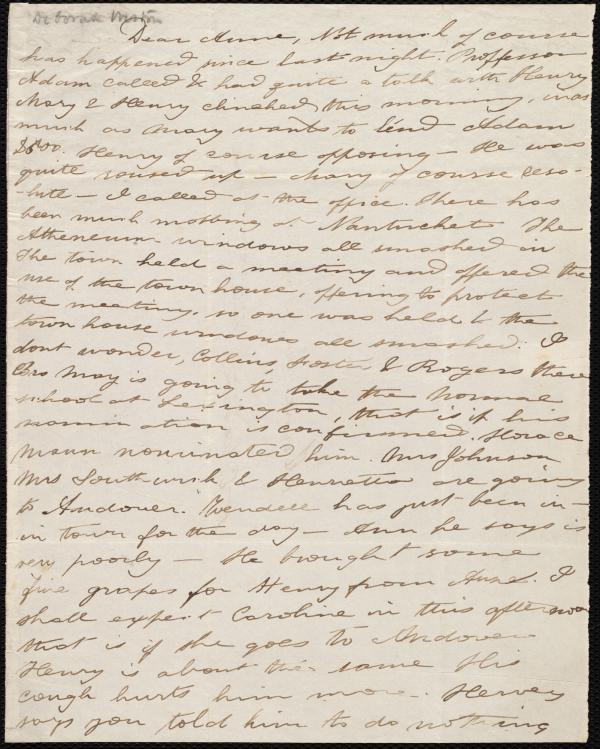 Deborah Weston
Dear Anne, Not much of course
has happened since last night. Professor
Adam called & had quite a talk with Henry
Mary & Henry clinched this morning, inas
much as Mary wants to lend Adam
$500. Henry of course opposing — He was
quite roused up — Mary of course reso-
-lute — I called at the office. There has
been much mobbing at Nantucket. The
Atheneum windows all smashed in
The town held a meeting and offered the
use of the town house, offering to protect
the meeting, so one was held & the
town house windows all smashed. I
dont wonder, Collins, Foster & Rogers there
Bro May is going to take the Normal
school at Lexington, that is if his
nomination is confirmed. Horace
Mann nominated him. Mrs Johnson
Mrs Southwick & Henrietta are going
to Andover. Wendell has just been in —
in town for the day — Ann he says is
very poorly — He brought some
fine grapes for Henry from Anne. I
shall expect Caroline in this afternoon
that is if she goes to Andover
Henry is about the same His
cough hurts him more. Hervey
says you told him to do nothing